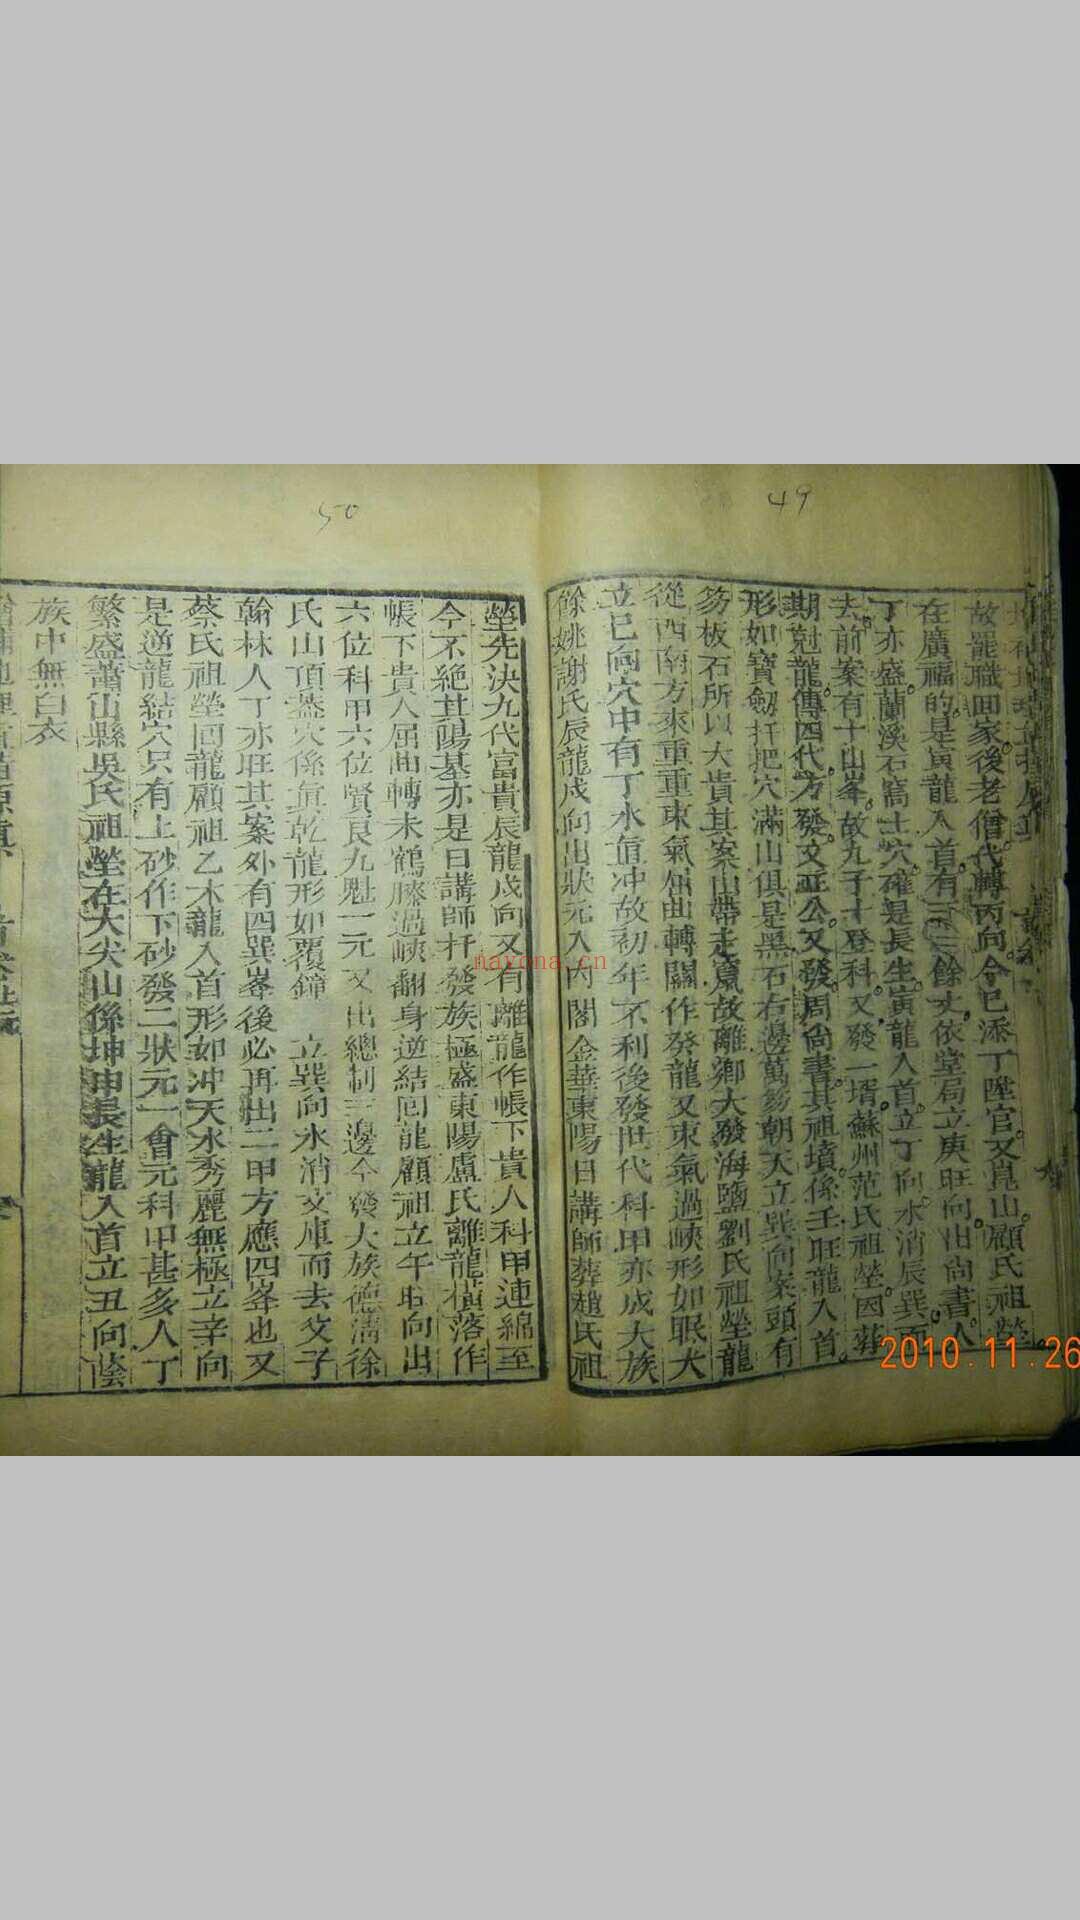 49
故罷職回家後老僧代轉丙向今已添丁陞官又崑山顧氏祖塋
在廣福的是寅龍入首有三餘丈依堂局立庚旺向出尚書人
丁亦盛蘭溪石窩土穴確是長生寅龍入首立丁向水消辰巽而
去前案有十山峯故九子十登科又發一壻蘇州范氏祖塋因葬
期尅龍傳四代方發文正公又發周尚書其祖墳係壬旺龍入首
形如寶劍扦把穴滿山俱是黑石右邊萬笏朝天立巽向案頭有
笏板石所以大貴其案山帶走鳳故離鄉大發海鹽劉氏祖塋龍
從西南方來重重束氣屈曲轉關作癸龍又束氣過峽形如眠犬
立巳向穴中有丁水直冲故初年不利後發世代科甲亦成大族
餘姚謝氏辰龍戌向出狀元入內閣金華東陽日講師葬趙氏祖
50
塋先決九代富貴辰龍戌向又有離龍作帳下貴人科甲連綿至
今不絕其陽基亦是日講師扞發族極盛東陽盧氏離龍橫落作
帳下貴人屈曲轉未鶴膝過峽翻身逆結回龍顧祖立午向出
六位科甲六位賢良九魁一元又出總制三邊今發大族德清徐
氏山頂葢穴係直乾龍形如覆鐘 立巽向水消文庫而去父子
翰林人丁亦旺其案外有四巽峯後必再出二甲方應四峯也又
蔡氏祖塋回龍顧祖乙木龍入首形如冲天水秀麗無極立辛向
是逆龍結穴只有上砂作下砂發二狀元一會元科甲甚多人丁
繁盛蕭山縣吳氏祖塋在大尖山係坤申長生龍入首立丑向蔭
族中無白衣
nayona.cn
2010.11.26